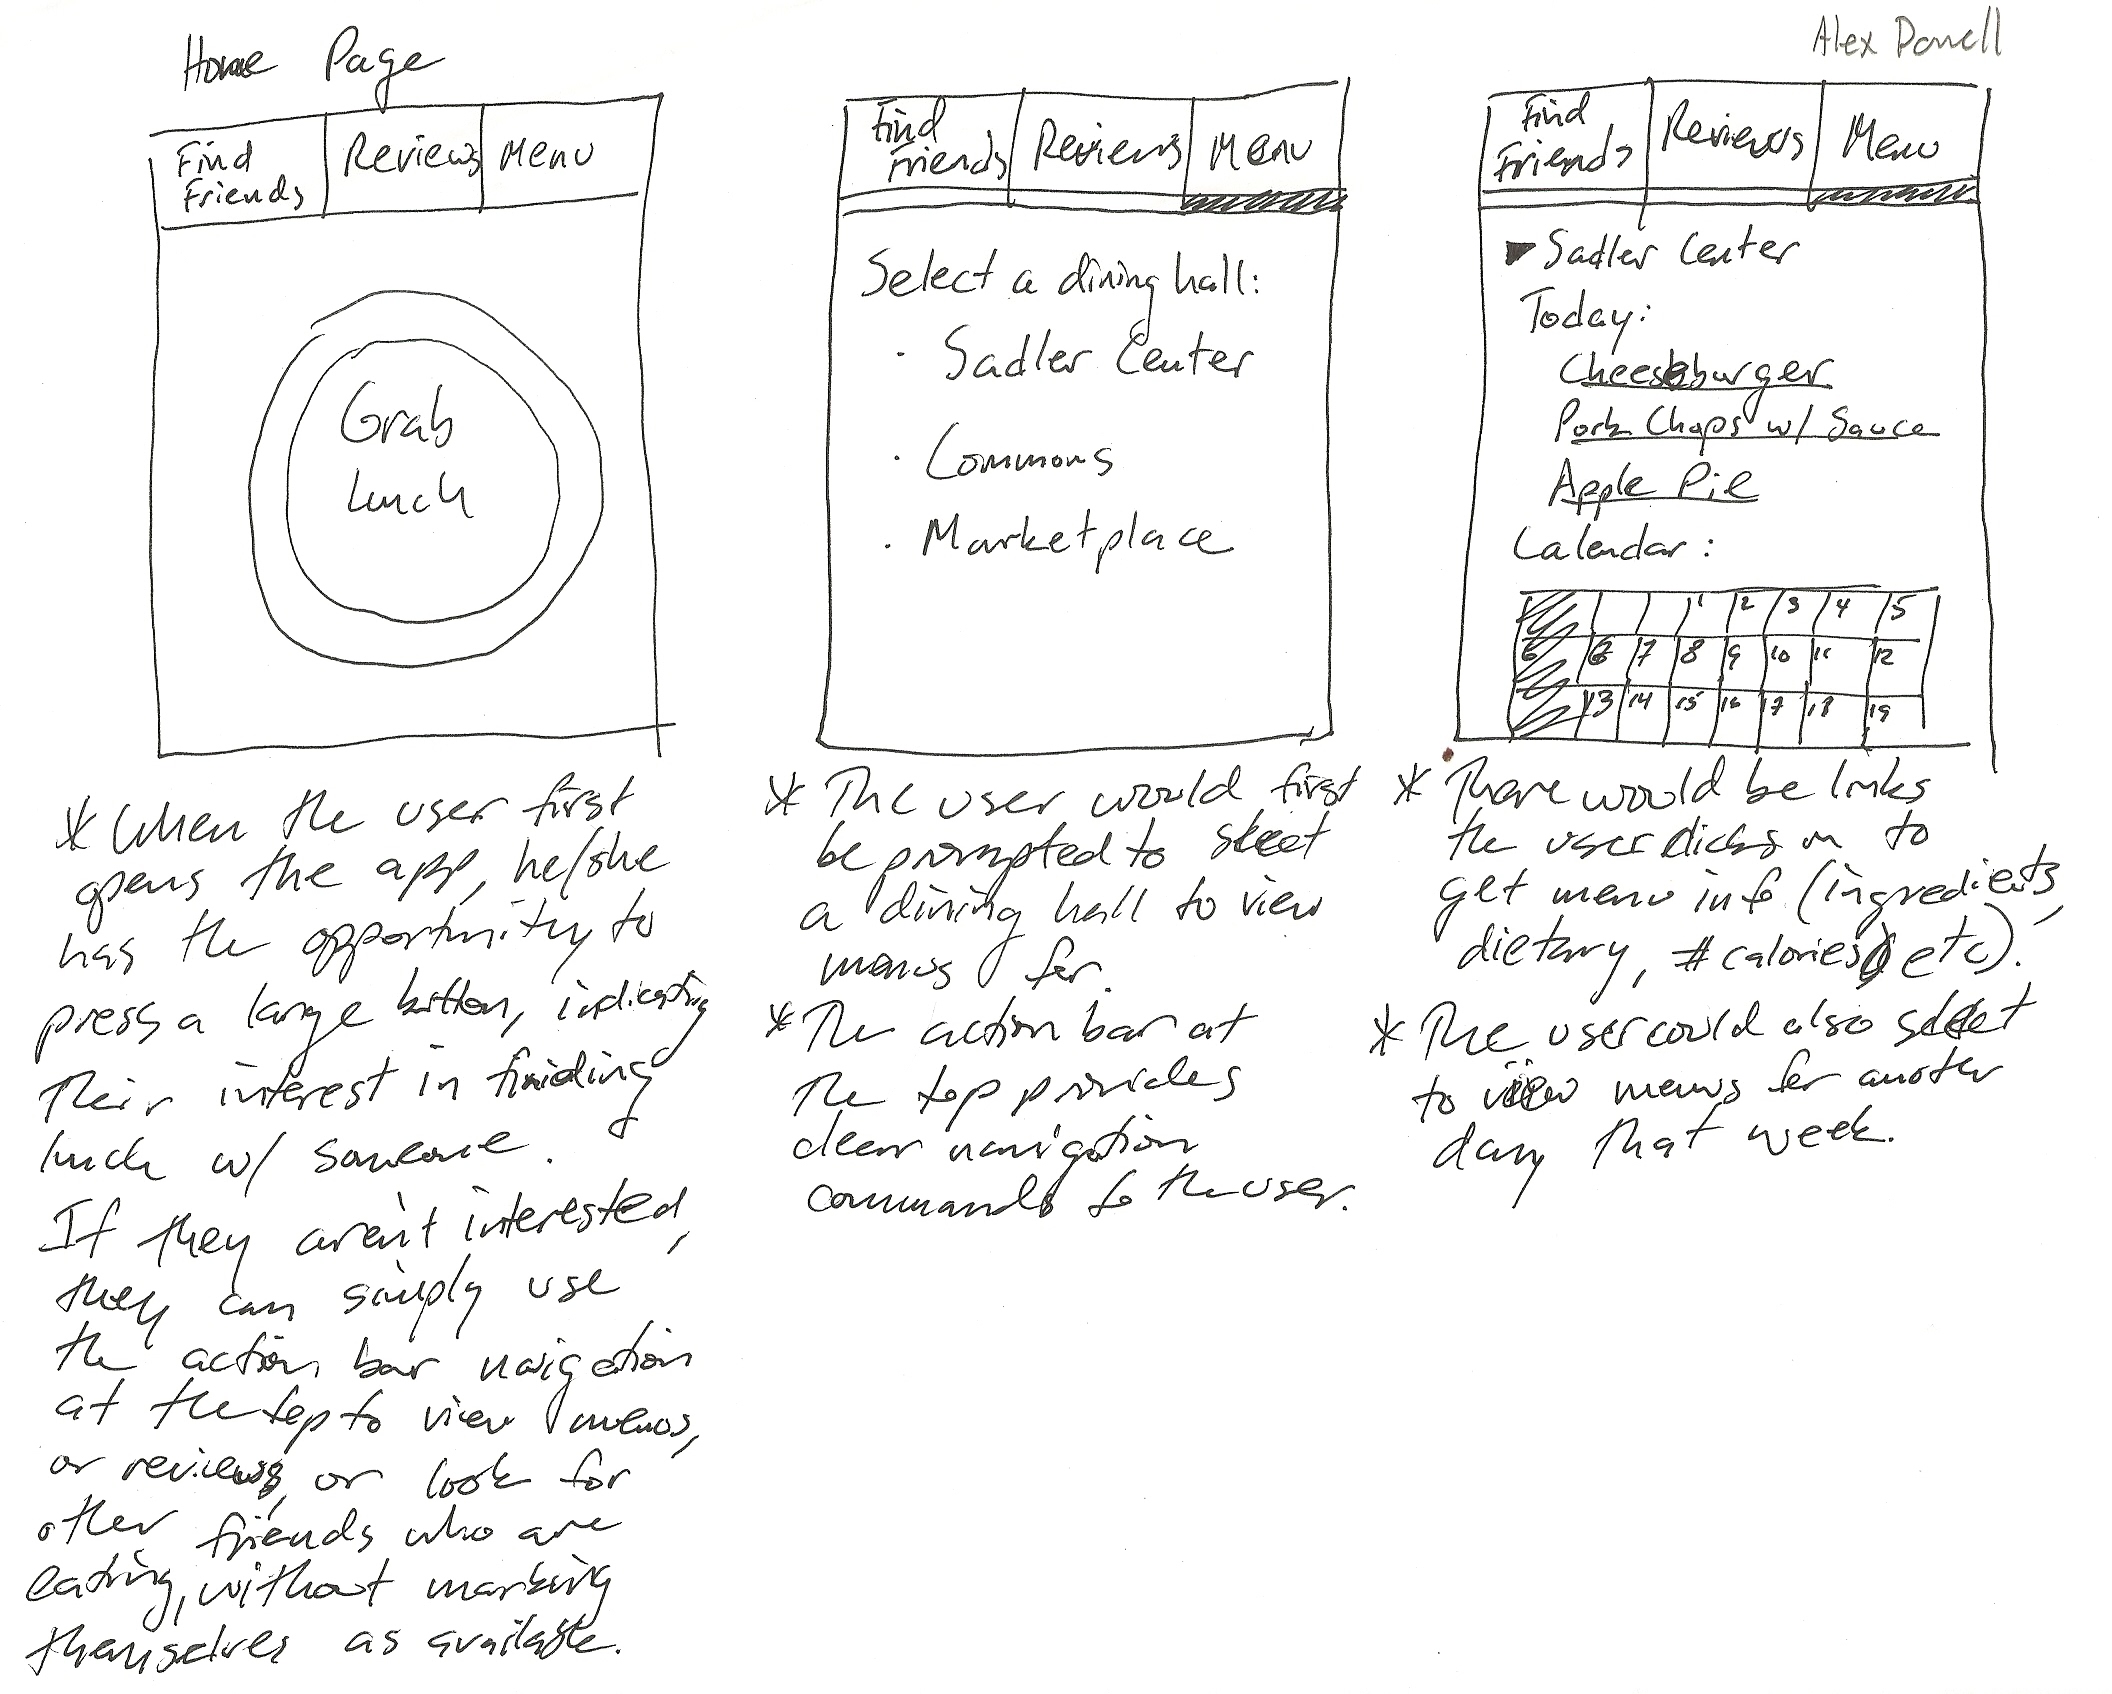 Home Page
Find
Friends
Reviews
Menu
Grab
Lunch
* When the user first
opens the app, he/she
has the opportunity to
press a large button, indicating
their interest in finding
lunch w/ someone.
If they aren't interested,
they can simply use
the action bar navigation
at the top to view menus,
or reviews, or look for
other friends who are
eating, without marking
themselves as available.
Find
Friends
Reviews
Menu
Select a dining hall:
· Sadler Center
· Commons
· Marketplace
* The user would first
be prompted to select
a dining hall to view
menus for.
* The action bar at
the top provides
clear navigation
commands to the user.
Alex
Find
Friends
Reviews
Menu
Sadler Center
Today:
Cheeseburger
Pork Chops w/ Sauce
Apple Pie
Calendar:
1 2 3 4 5
6 6 7 8 9 10 11 12
13 14 15 16 17 18 19
* There would be links
the user clicks on to
get menu info (ingredients,
dietary, # calories, etc).
* The user could also select
to view menus for another
day that week.